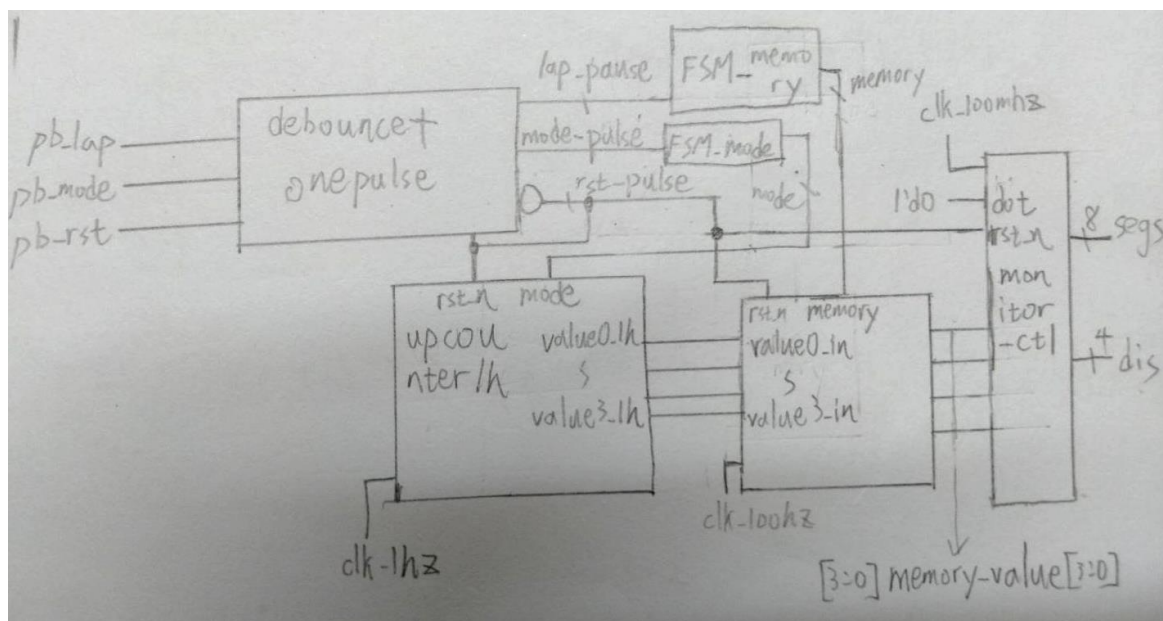 pb_lap
pb_mode
pb_rst
debounce+
onepulse
lap_pause
mode-pulse
rst-pulse
FSM_memo
ry
FSM_mode
memory
mode
clk_100mhz
1'd0
dot
rst_n
mon
itor
-ctl
8 segs
4
dis
rst_n mode
upcou
nter1h
value0_1h
s
value3_1h
rst_n memory
value0_in
s
value3-in
clk-1hz
clk-100hz
[3:0] memory-value[3:0]